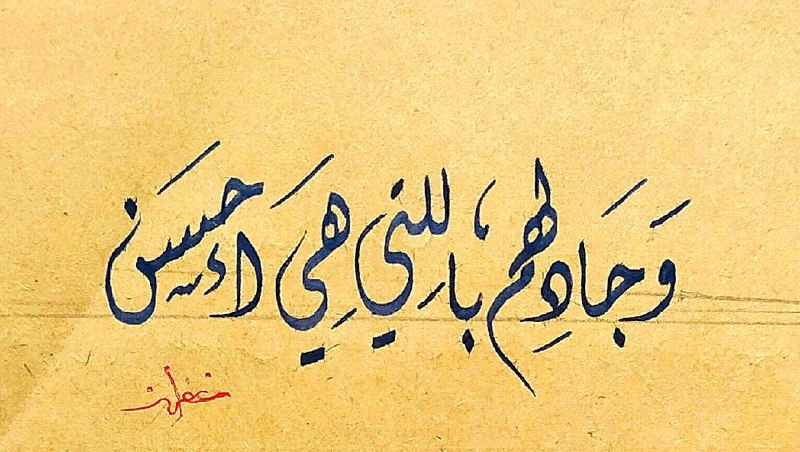 وَجَادِلهُم بِاللتي هِيَ أَحسَن